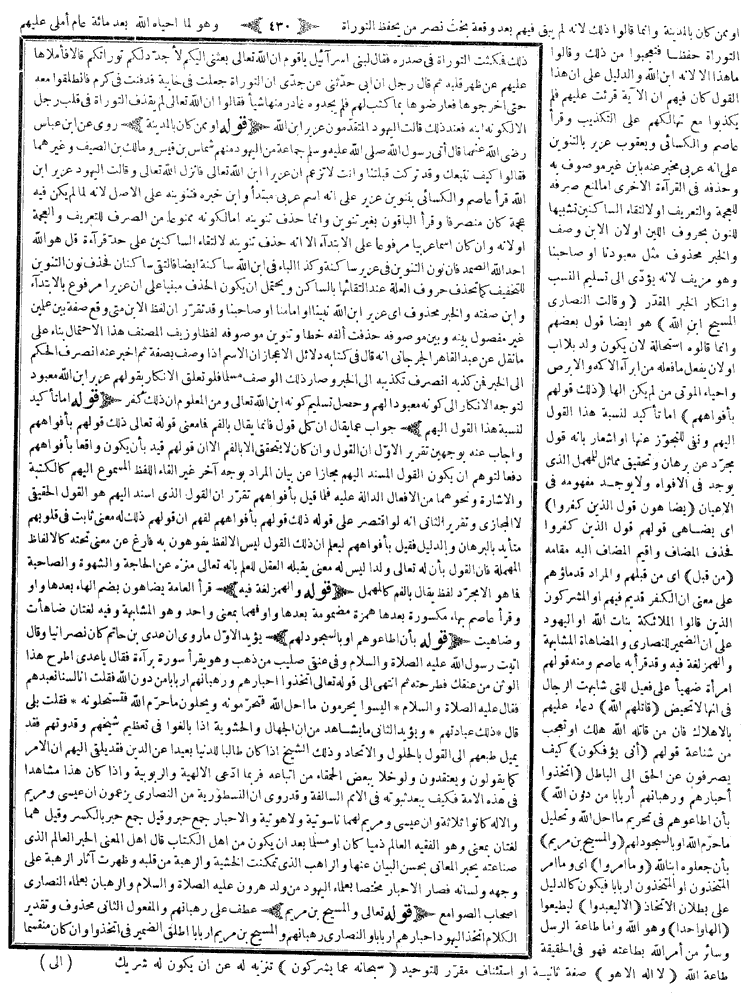 او ممن كان بالمدينة وانما قالوا ذلك لانه لم يبق فيهم بعد وقعة بخت نصر من يحفظ التوراة ﴿ ٤٣٠ ﴾ وهو لما احياه الله بعد مائة عام أملى عليهم
التوراة حفظا فتعجبوا من ذلك وقالوا
ماهذا الا لانه ابن الله والدليل على ان هذا
القول كان فيهم ان الآية قرئت عليهم فلم
يكذبوا مع تهالكهم على التكذيب وقرأ
عاصم والكسائى ويعقوب عزير بالتنوين
على انه عربى مخبر عنه بابن غير موصوف به
وحذفه فى القرآءة الاخرى اما لمنع صرفه
للعجمة والتعريف اولالتقاء الساكنين تشبيها
للنون بحروف اللين اولان الابن وصف
والخبر محذوف مثل معبودنا او صاحبنا
وهو مزيف لانه يؤدّى الى تسليم النسب
وانكار الخبر المقدّر ( وقالت النصارى
المسيح ابن الله ) هو ايضا قول بعضهم
وانما قالوه استحالة لان يكون ولد بلا اب
اولان يفعل مافعله من ابرآء الاكه والابرص
واحياء الموتى من لم يكن الها ( ذلك قولهم
بأفواههم ) اما تأكيد لنسبة هذا القول
اليهم ونفى للتجوّز عنها او اشعار بانه قول
مجرّد عن برهان وتحقيق مماثل للمهمل الذى
يوجد فى الافواه ولا يوجد مفهومه فى
الاعيان ( يضاهون قول الذين كفروا )
اى يضاهى قولهم قول الذين كفروا
فحذف المضاف واقيم المضاف اليه مقامه
( من قبل ) اى من قبلهم و المراد قدماؤهم
على معنى ان الكفر قديم فيهم او المشركون
الذين قالوا الملائكة بنات الله او اليهود
على ان الضمير للنصارى والمضاهاة المشابهة
والهمز لغة فيه وقد قرأ به عاصم ومنه قولهم
امرأة ضهيأ على فعيل للتى شابهت الرجال
فى انها لاتحيض ( قاتلهم الله ) دعاء عليهم
بالاهلاك فان من قاتله الله هلك او تعجب
من شناعة قولهم ( أنى يؤفكون ) كيف
يصرفون عن الحق الى الباطل ( اتخذوا
أحبارهم ورهبانهم أربابا من دون الله )
بأن اطاعوهم فى تحريم ما احل الله وتحليل
ماحرّم الله او بالسجود لهم ( والمسيح بن مريم )
بأن جعلوه ابنا لله ( وما امروا ) اى وما امر
المتخذون او المتخذون اربابا فيكون كالدليل
على بطلان الاتخاذ ( الا ليعبدوا ) ليطيعوا
( الها واحدا ) وهو الله واما طاعة الرسل
وسائر من أمر الله بطاعته فهو فى الحقيقة
طاعة الله ( لا اله الا هو ) صفة ثانية او استئناف مقرّر للتوحيد ( سبحانه عما يشركون ) تنزيه له عن ان يكون له شريك ( الى )
ذلك فمكثت التوراة فى صدره فقال لبنى اسرآئيل ياقوم ان الله تعالى بعثنى اليكم لأجدّد لكم توراتكم قالوا فأملاها
عليهم عن ظهر قلبه ثم قال رجل ان ابى حدّثنى عن جدّى ان التوراة جعلت فى خابية فدفنت فى كرم فانطلقوا معه
حتى اخرجوها فعارضوها بما كتب لهم فلم يجدوه غادر منها شيأ فقالوا ان الله تعالى لم يقذف التوراة فى قلب رجل
الا لكونه ابنه فعند ذلك قالت اليهود المتقدّمون عزير ابن الله ﴿قوله او ممن كان بالمدينة﴾ روى عن ابن عباس
رضى الله عنهما قال أتى رسول الله صلى الله عليه وسلم جماعة من اليهود منهم شماس بن قيس ومالك بن الصيف وغيرهما
فقالوا كيف نتبعك وقد تركت قبلتنا وانت لاتزعم ان عزيرا ابن الله تعالى فانزل الله تعالى وقالت اليهود عزير ابن
الله قرأ عاصم والكسائى بتنوين عزير على انه اسم عربى مبتدأ وابن خبره فتنوينه على الاصل لانه لما لم يكن فيه
عجمة كان منصرفا وقرأ الباقون بغير تنوين وانما حذف تنوينه امالكونه ممنوعا من الصرف للتعريف والعجمة
اولانه وان كان اسما عربيا مرفوعا على الابتدآء الا انه حذف تنوينه لالتقاء الساكنين على حدّ قرآءة قل هو الله
احد الله الصمد فان نون التنوين فى عزير ساكنة وكذا الباء فى ابن الله ساكنة ايضا فالتقى ساكنان فحذف نون التنوين
للتخفيف كما تحذف حروف العلة عند التقائها بالساكن ويحتمل ان يكون الحذف مبنيا على ان عزيرا مرفوع بالابتدآء
وابن صفته والخبر محذوف اى عزير ابن الله نبينا او امامنا او صاحبنا وقد تقرّر ان لفظ الابن متى وقع صفة بين علمين
غير مفصول بينه وبين موصوفه حذفت ألفه خطا وتنوين موصوفه لفظا وزيف المصنف هذا الاحتمال بناء على
مانقل عن عبد القاهر الجرجانى انه قال فى كتابه دلائل الاعجاز ان الاسم اذا وصف بصفة ثم اخبر عنه انصرف الحكم
الى الخبر فمن كذبه انصرف تكذيبه الى الخبر وصار ذلك الوصف مسلما فلو تعلق الانكار بقولهم عزير ابن الله معبود
لتوجه الانكار الى كونه معبودا لهم وحصل تسليم كونه ابن الله تعالى ومن المعلوم ان ذلك كفر ﴿قوله اما تأكيد
لنسبة هذا القول اليهم﴾ جواب عما يقال ان كل قول فانما يقال بالفم فما معنى قوله تعالى ذلك قولهم بأفواههم
واجاب عنه بوجهين تقرير الاوّل ان القول وان كان لايتحقق الا بالفم الا ان قولهم قيد بأن يكون واقعا بأفواههم
دفعا لتوهم ان يكون القول المسند اليهم مجازا عن بيان المراد بوجه آخر غير القاء اللفظ المسموع اليهم كالكتبة
والاشارة ونحوهما من الافعال الدالة عليه فلما قيل بأفواههم تقرّر ان القول الذى اسند اليهم هو القول الحقيقى
لا المجازى وتقرير الثانى انه لو اقتصر على قوله ذلك قولهم لفهم ان قولهم ذلك له معنى ثابت فى قلوبهم
متأيد بالبرهان والدليل فقيل بأفواههم ليعلم ان ذلك القول ليس الا لفظ يفوهون به فارغ عن معنى تحته كالالفاظ
المهملة فان القول بأن له تعالى ولدا ليس له معنى يقبله العقل للعلم بانه تعالى منزه عن الحاجة والشهوة والصاحبة
فما هو الا مجرّد لفظ يقال بالفم كالمهمل ﴿قوله والهمز لغة فيه﴾ قرأ العامة يضاهون بضم الهاء بعدها واو
وقرأ عاصم بهاء مكسورة بعدها همزة مضمومة بعدها واو فهما بمعنى واحد وهو المشابهة وفيه لغتان ضاهأت
وضاهيت ﴿قوله بأن اطاعوهم او بالسجود لهم﴾ يؤيد الاوّل ماروى ان عدى بن حاتم كان نصرانيا وقال
اتيت رسول الله عليه الصلاة والسلام وفى عنقى صليب من ذهب وهو يقرأ سورة برآءة فقال ياعدى اطرح هذا
الوثن من عنقك فطرحته ثم انتهى الى قوله تعالى اتخذوا احبارهم ورهبانهم اربابا من دون الله فقلت انا لسنا نعبدهم
فقال عليه الصلاة والسلام * اليسوا يحرمون ما احل الله فتحرّمونه ويحلون ماحرّم الله فتستحلونه * فقلت بلى
قال * ذلك عبادتهم * ويؤيد الثانى مايشاهد من ان الجهال والحشوية اذا بالغوا فى تعظيم شيخهم وقدوتهم فقد
يميل طبعهم الى القول بالحلول والاتحاد وذلك الشيخ اذا كان طالبا للدنيا بعيدا عن الدين فقد يلقى اليهم ان الامر
كما يقولون ويعتقدون ولو خلا ببعض الحمقاء من اتباعه فربما ادّعى الالهية والربوبية واذا كان هذا مشاهدا
فى هذه الامة فكيف يبعد ثبوته فى الامم السالفة وقدروى ان النسطورية من النصارى يزعمون ان عيسى ومريم
والاله كانوا ثلاثة وان عيسى ومريم لهما ناسوتية ولاهوتية والاحبار جمع حبر وقيل جمع حبر بالكسر وقيل هما
لغتان بمعنى وهو الفقيه العالم ذميا كان او مسلما بعد ان يكون من اهل الكتاب قال اهل المعنى الحبر العالم الذى
صناعته بحبر المعانى بحسن البيان عنها والراهب الذى تمكنت الخشية والرهبة من قلبه وظهرت آثار الرهبة على
وجهه ولسانه فصار الاحبار مختصا بعلماء اليهود من ولد هرون عليه الصلاة والسلام والرهبان بعلماء النصارى
اصحاب الصوامع ﴿قوله تعالى والمسيح بن مريم﴾ عطف على رهبانهم والمفعول الثانى محذوف وتقدير
الكلام اتخذ اليهود احبارهم اربابا والنصارى رهبانهم والمسيح بن مريم اربابا اطلق الضمير فى اتخذوا وان كان منقسما